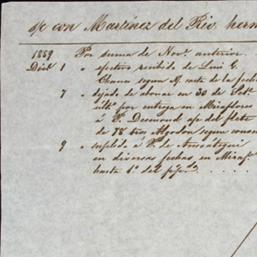 c/c con Martinez del Rio herm
1859 Por suma de Nov.e anterior
Dicb.e 1 " efectivo recibido de Luis G.
Chavez segun N/ carta de la fecha
7 " dejado de abonar en 30 de Octb.e
ult.o por entrega en Miraflores
á P. Desmond a/c del flete
de 78 tros Algodon segun
9 " suplido á P. de
en diversas fechas en Miraf.
hasta 1.o del